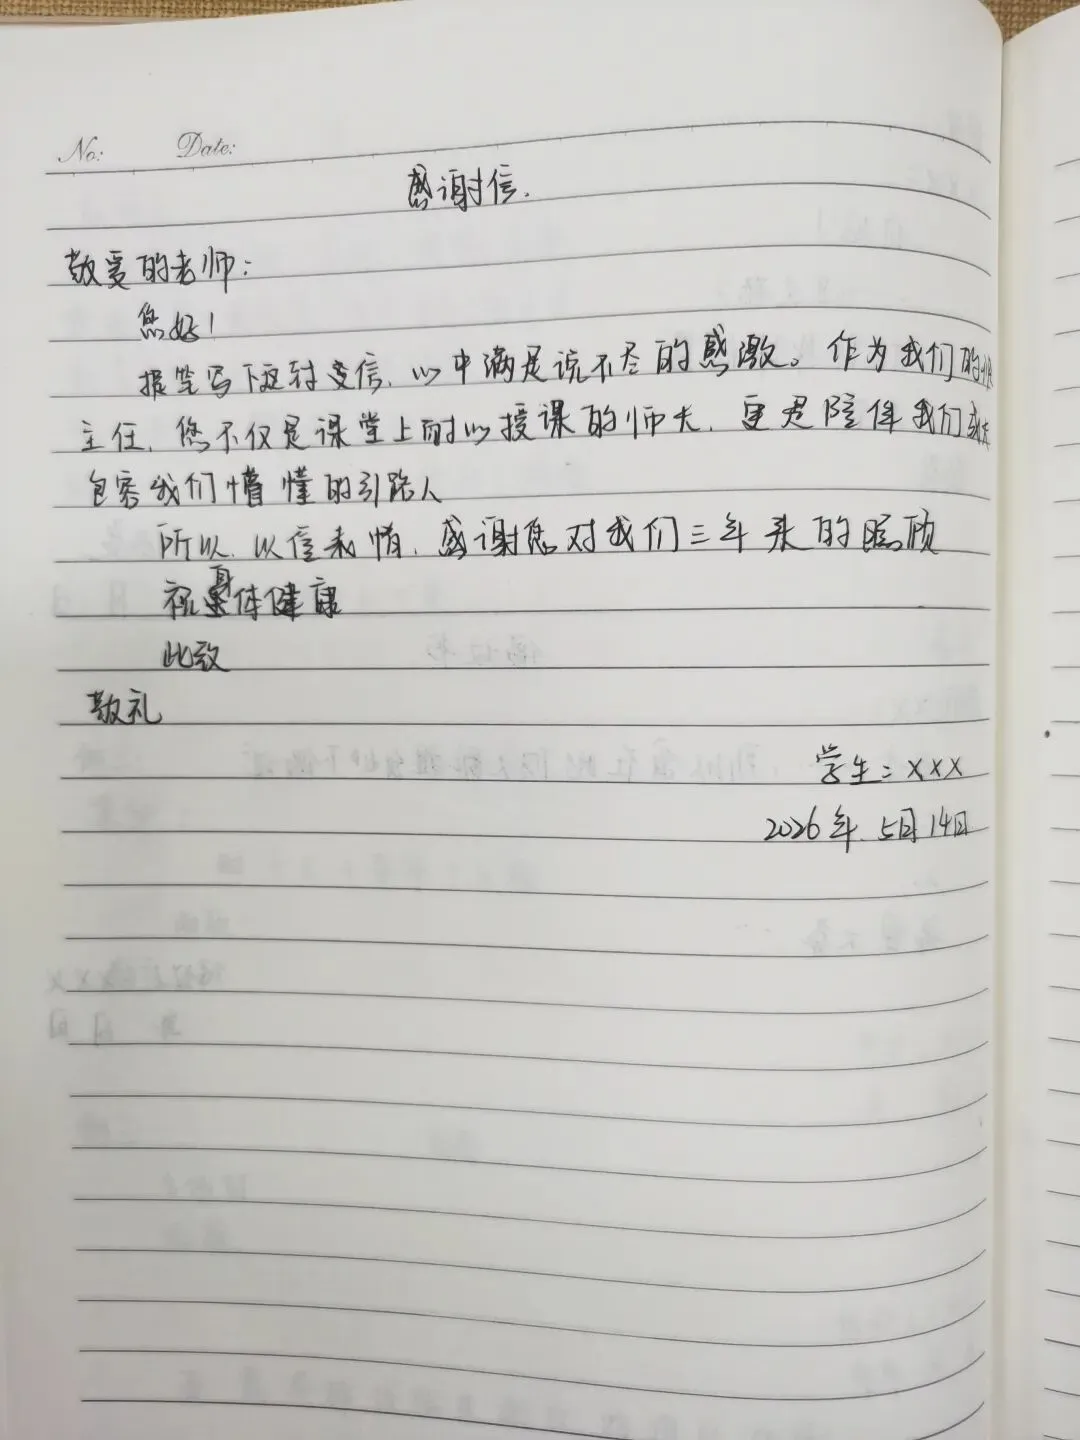 No: Date:
感谢信.
敬爱的老师:
您好!
提笔写下这封信,心中满是说不尽的感激。作为我们的班
主任,您不仅是课堂上耐心授课的师夫,更是陪伴我们成长
包容我们懵懂的引路人
所以,以信表情,感谢您对我们三年来的照顾
祝身体健康
此致
敬礼
学生:XXX
2026年.5月14日